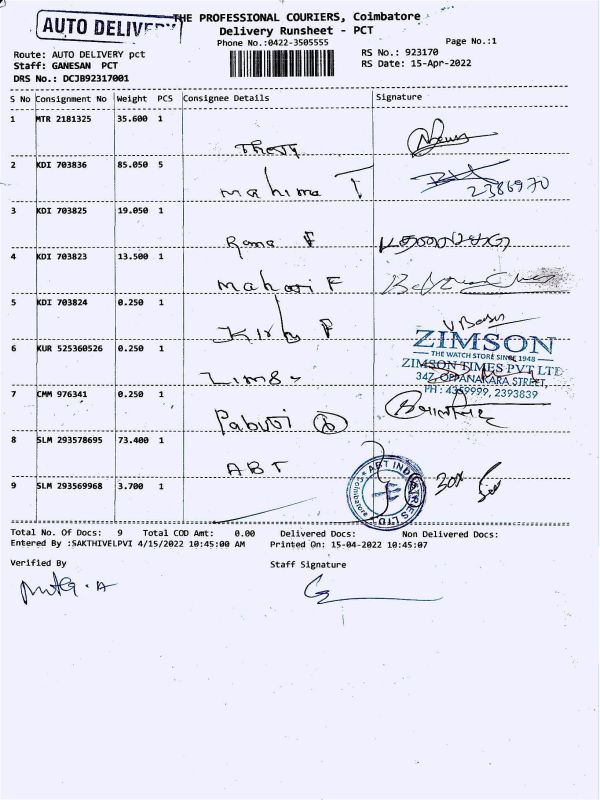 AUTO DELIVERY
THE PROFESSIONAL COURIERS, Coimbatore
Delivery Runsheet - PCT
Phone No.:0422-3505555
Page No.:1
Route: AUTO DELIVERY pct
RS No.: 923170
Staff: GANESAN PCT
RS Date: 15-Apr-2022
DRS No.: DCJB92317001
S No Consignment No Weight PCS Consignee Details Signature
1 MTR 2181325 35.600 1
2 KDI 703836 85.050 5
Mahima T
2386970
3 KDI 703825 19.050 1
Rama F
4 KDI 703823 13.500 1
5 KDI 703824 0.250 1
ZIMSON
THE WATCH STORE SINCE 1948
6 KUR 525360526 0.250 1
ZIMSON TIMES PVT LTD
347, OPPANAKARA STREET,
PH : 4359999, 2393839
7 CMM 976341 0.250 1
8 SLM 293578695 73.400 1
ABT
ABT INDUSTRIES LTD
Coimbatore
9 SLM 293569968 3.700 1
Total No. Of Docs: 9 Total COD Amt: 0.00 Delivered Docs: Non Delivered Docs:
Entered By :SAKTHIVELPVI 4/15/2022 10:45:00 AM Printed On: 15-04-2022 10:45:07
Verified By Staff Signature